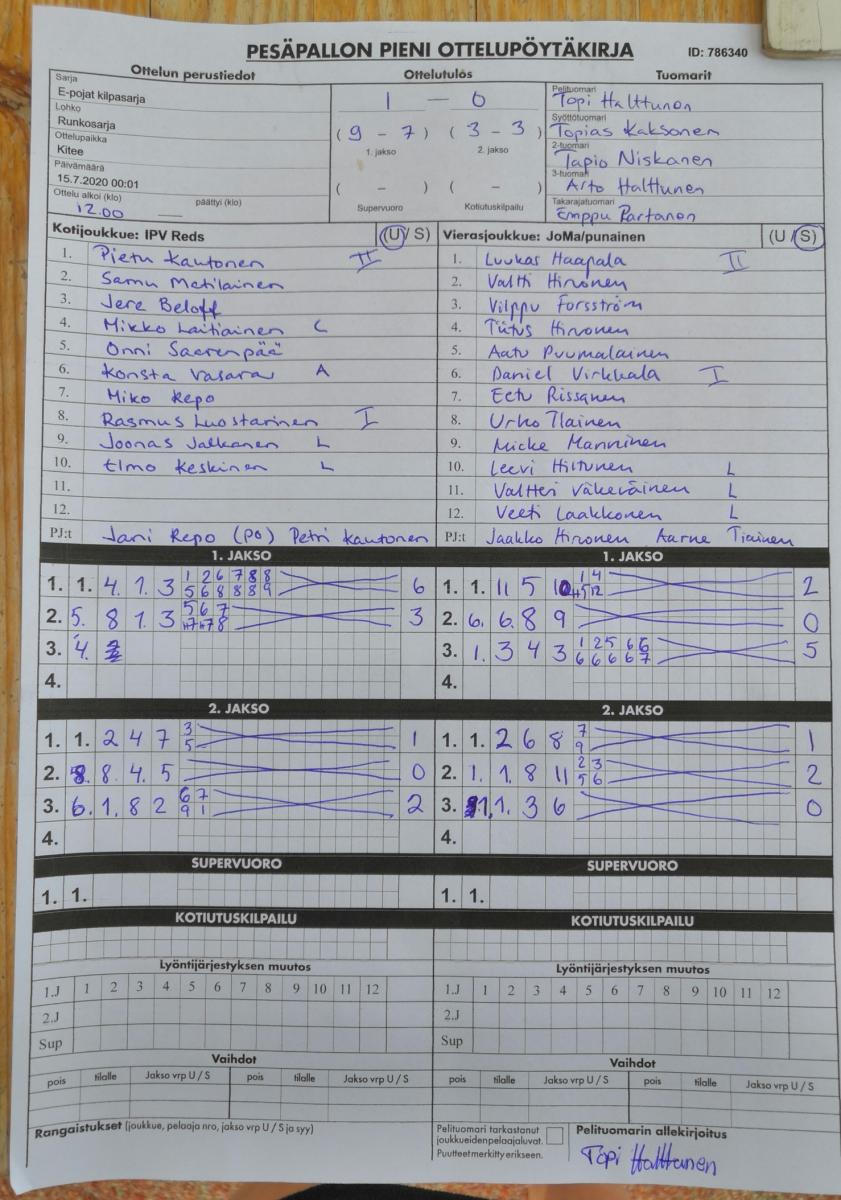 PESÄPALLON PIENI OTTELUPÖYTÄKIRJA
ID: 786340
Ottelun perustiedot
Sarja
E-pojat kilpasarja
Lohko
Runkosarja
Ottelupaikka
Kitee
Päivämäärä
15.7.2020 00:01
Ottelu alkoi (klo) päättyi (klo)
12.00
Ottelutulos
1 — 0
( 9 - 7 ) ( 3 - 3 )
1. jakso 2. jakso
( - ) ( - )
Supervuoro Kotiutuskilpailu
Tuomarit
Pelituomari
Topi Halttunen
Syöttötuomari
Topias Kaksonen
2-tuomari
Tapio Niskanen
3-tuomari
Arto Halttunen
Takarajatuomari
Emppu Partanen
Kotijoukkue: IPV Reds (U / S)
1. Pietu Kautonen II
2. Samu Matilainen
3. Jere Beloff
4. Mikko Laitiainen C
5. Onni Saarenpää
6. Konsta Vasara A
7. Miko Repo
8. Rasmus Luostarinen I
9. Joonas Jalkanen L
10. Elmo Keskinen L
11.
12.
PJ:t Jani Repo (po) Petri Kautonen
Vierasjoukkue: JoMa/punainen (U / S)
1. Luukas Haapala II
2. Valtti Hirvonen
3. Vilppu Forsström
4. Tiitus Hirvonen
5. Aatu Puumalainen
6. Daniel Virkkala I
7. Eetu Rissanen
8. Urho Ilainen
9. Micke Manninen
10. Leevi Hiltunen L
11. Valtteri Väkeväinen L
12. Veeti Laakkonen L
PJ:t Jaakko Hironen Aarne Tiainen
1. JAKSO
1. 1. 4 1 3 1 2 6 7 8 8
5 6 8 8 8 9 6
2. 5. 8 1 3 5 6 7
8 3
3. 4.
4.
1. JAKSO
1. 1. 11 5 10 1 4
12 2
2. 6. 6. 8 9 0
3. 1. 3 4 3 1 2 5 6 6
6 6 6 6 7 5
4.
2. JAKSO
1. 1. 2 4 7 3
5 1
2. 8. 8. 4. 5 0
3. 6. 1. 8 2 6 7
9 1 2
4.
2. JAKSO
1. 1. 2 6 8 7
9 1
2. 1. 1. 8 11 2 3
5 6 2
3. 1. 3 6 0
4.
SUPERVUORO
1. 1.
SUPERVUORO
1. 1.
KOTIUTUSKILPAILU
KOTIUTUSKILPAILU
Lyöntijärjestyksen muutos
1.J 1 2 3 4 5 6 7 8 9 10 11 12
2.J
Sup
Lyöntijärjestyksen muutos
1.J 1 2 3 4 5 6 7 8 9 10 11 12
2.J
Sup
Vaihdot
pois tilalle Jakso vrp U / S pois tilalle Jakso vrp U / S
Vaihdot
pois tilalle Jakso vrp U / S pois tilalle Jakso vrp U / S
Rangaistukset (joukkue, pelaaja nro, jakso vrp U / S ja syy)
Pelituomari tarkastanut
joukkueiden pelaajaluvat.
Puutteet merkitty erikseen.
Pelituomarin allekirjoitus
Topi Halttunen